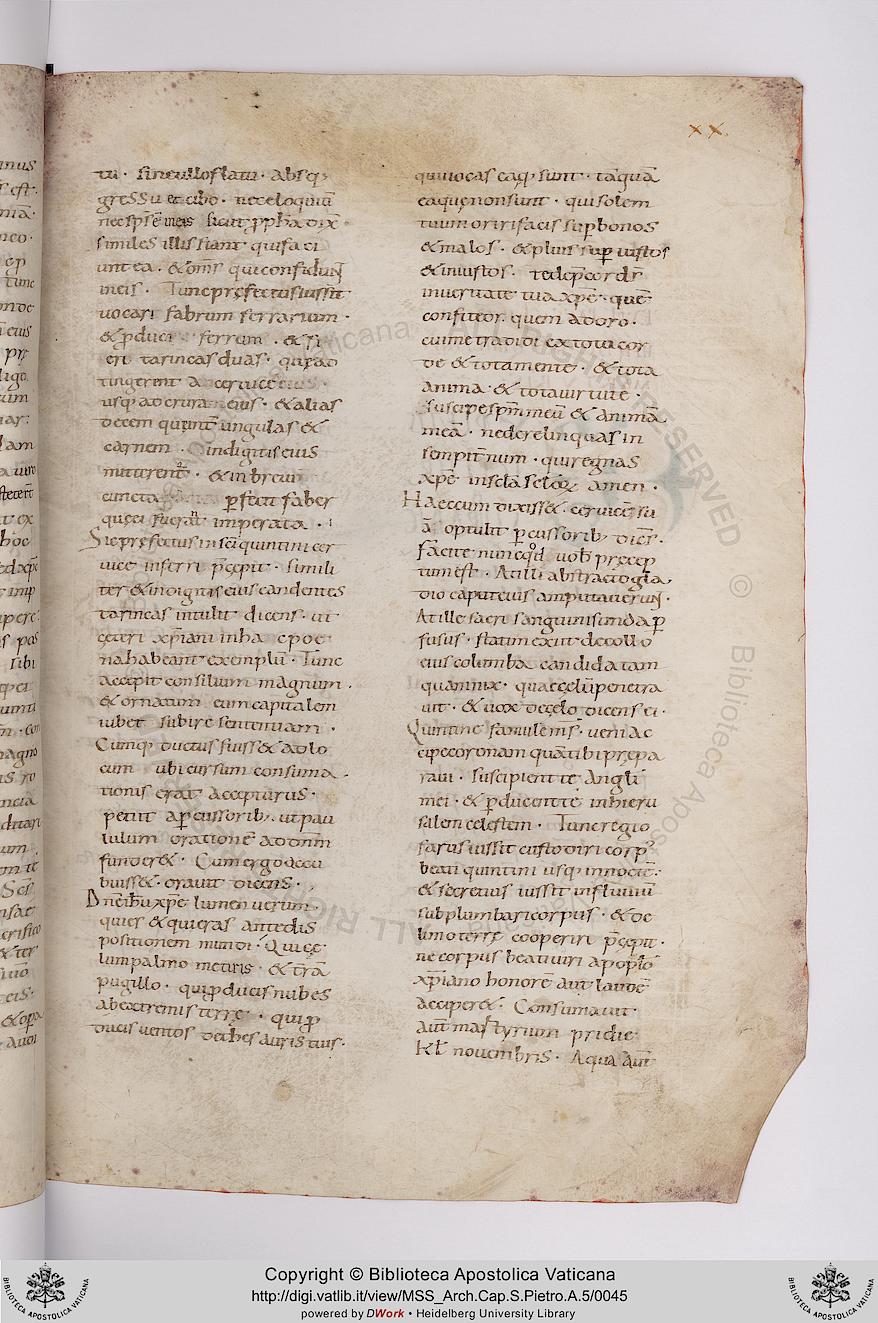 xx.
tu · sineullo flatu · absq;
gressu et cibo · nec eloquiū
nec sps ē in eis sicut ꝓph̄a dix̄
similes illis fiant qui faci
unt ea · & om̄s qui confidunt
in eis · Tunc prefectus iussit
uocari fabrum ferrarium ·
& ꝓduci ferrum · & fi
eri tarincas duas · que ad
tingerent a ceruice eius ·
usq; ad crura eius · & alias
decem que int̄ ungulas &
carnem · indigitis eius
mitterent · & in breui
cuncta perfecit faber
que ei fuerant imperata ·
Sic prefectus in sc̄i quintini cer
uice inferri p̄cepit · simili
ter & indigitis eius candentes
tarincas intulit dicens · ut
ceteri xp̄iani in ha c poe
na habeant exemplū · Tunc
accepit consilium magnum ·
& ornatum eum capitalem
iubet subire sententiam ·
Cumq; ductus fuiss& ad lo
cum ubi cursum consuma
tionis erat accepturus ·
petiit a ꝑcussorib; · ut pau
lulum orationē ad dn̄m
funder& · Cum ergo accu
buiss& · orauit dicens ·
Dn̄e ihū xpe lumen uerum ·
qui es & qui eras ante dis
positionem mundi · Qui ce
lum palmo metiris · & trā
pugillo · qui ꝓducis nubes
ab extremis terre · qui ꝓ
ducis uentos de thesauris tuis ·
qui uocas ea q; sunt · taquā
ea que non sunt · qui solem
tuum oriri facis sup bonos
& malos · & pluis sup iustos
& iniustos · te dep̄cor dn̄
in ueritate tua xpē · quē
confiteor · quem adoro ·
cui me tradidi ex toto cor
de & tota mente · & tota
anima · & tota uirtute ·
suscipe spm̄ meū & animā
meā · ne derelinquas in
sempit̄num · qui regnas
xpē in scl̄a scl̄oꝝ amen ·
Haec cum dixiss& · ceruicē su
ā optulit ꝑcussorib; dicēs ·
facite nunc qd̄ uob̄ precep
tum est · At illi abstracto gla
dio caput eius amputauerunt ·
At ille sacri sanguinis unda ꝑ
fusus · statim exiit de collo
eius columba candida tam
quam nix · quae celū penetra
uit · & uox de celo dicens ei ·
Quintine famule m̄s · ueni ac
cipe coronam quā tibi prepa
raui · suscipient te angli
mei · & ꝓducent te in hieru
salem celestem · Tunc regio
farus iussit custodiri corp;
beati quintini usq; in nocte ·
& secretius iussit in fluuiū
sub plumbari corpus · & de
limo terre cooperiri p̄cepit ·
ne corpus beati uiri a poplo
xp̄iano honorē aut laudē
acciper& · Consumauit ·
aut̄ martyrium pridie
Kl̄ nouembris · Aqua aut̄
Copyright © Biblioteca Apostolica Vaticana
http://digi.vatlib.it/view/MSS_Arch.Cap.S.Pietro.A.5/0045
powered by DWork • Heidelberg University Library